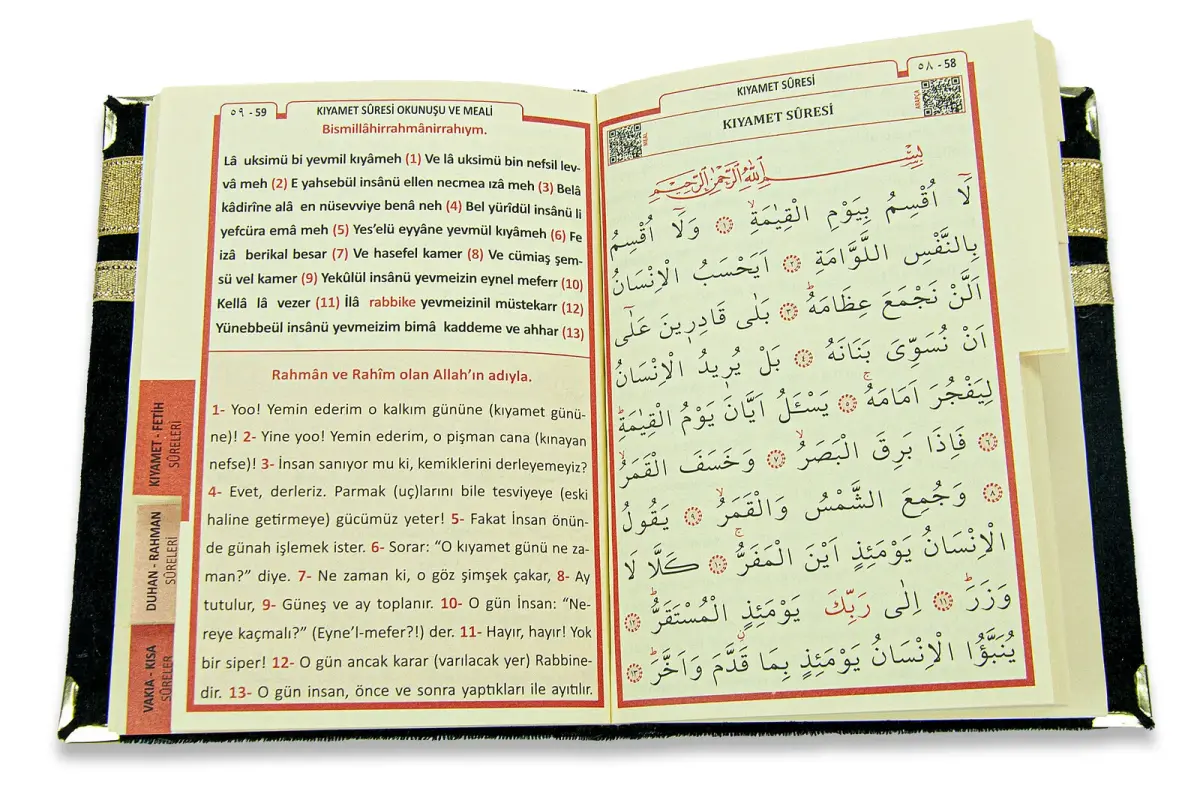 ٥٩ - 59
KIYAMET SÛRESİ OKUNUŞU VE MEALİ
Bismillâhirrahmânirrahıym.
Lâ uksimü bi yevmil kıyâmeh (1) Ve lâ uksimü bin nefsil lev-
vâ meh (2) E yahsebül insânü ellen necmea ızâ meh (3) Belâ
kâdirîne alâ en nüsevviye benâ neh (4) Bel yürîdül insânü li
yefcüra emâ meh (5) Yes'elü eyyâne yevmül kıyâmeh (6) Fe
izâ berikal besar (7) Ve hasefel kamer (8) Ve cümiaş şem-
sü vel kamer (9) Yekûlül insânü yevmeizin eynel meferr (10)
Kellâ lâ vezer (11) İlâ rabbike yevmeizinil müstekarr (12)
Yünebbeül insânü yevmeizim bimâ kaddeme ve ahhar (13)
Rahmân ve Rahîm olan Allah'ın adıyla.
1- Yoo! Yemin ederim o kalkım gününe (kıyamet günü-
ne)! 2- Yine yoo! Yemin ederim, o pişman cana (kınayan
nefse)! 3- İnsan sanıyor mu ki, kemiklerini derleyemeyiz?
4- Evet, derleriz. Parmak (uç)larını bile tesviyeye (eski
haline getirmeye) gücümüz yeter! 5- Fakat İnsan önün-
de günah işlemek ister. 6- Sorar: “O kıyamet günü ne za-
man?” diye. 7- Ne zaman ki, o göz şimşek çakar, 8- Ay
tutulur, 9- Güneş ve ay toplanır. 10- O gün İnsan: “Ne-
reye kaçmalı?” (Eyne’l-mefer?!) der. 11- Hayır, hayır! Yok
bir siper! 12- O gün ancak karar (varılacak yer) Rabbine-
dir. 13- O gün insan, önce ve sonra yaptıkları ile ayıtlır.
KIYAMET - FETİH
SÛRELERİ
DUHAN - RAHMAN
SÛRELERİ
VAKIA - KISA
SÛRELER
KIYAMET SÛRESİ
٥٨ - 58
MEAL
KIYAMET SÛRESİ
ARAPÇA
بِسْمِ اللّٰهِ الرَّحْمٰنِ الرَّحِيمِ
لَٓا اُقْسِمُ بِيَوْمِ الْقِيٰمَةِۙ ﴿١﴾ وَلَٓا اُقْسِمُ
بِالنَّفْسِ اللَّوَّامَةِ ﴿٢﴾ اَيَحْسَبُ الْاِنْسَانُ
اَلَّنْ نَجْمَعَ عِظَامَهُۜ ﴿٣﴾ بَلٰى قَادِرٖينَ عَلٰٓى
اَنْ نُسَوِّىَ بَنَانَهُ ﴿٤﴾ بَلْ يُرٖيدُ الْاِنْسَانُ
لِيَفْجُرَ اَمَامَهُۚ ﴿٥﴾ يَسْـَٔلُ اَيَّانَ يَوْمُ الْقِيٰمَةِۜ
﴿٦﴾ فَاِذَا بَرِقَ الْبَصَرُۙ ﴿٧﴾ وَخَسَفَ الْقَمَرُۙ
﴿٨﴾ وَجُمِعَ الشَّمْسُ وَالْقَمَرُۙ ﴿٩﴾ يَقُولُ
الْاِنْسَانُ يَوْمَئِذٍ اَيْنَ الْمَفَرُّۚ ﴿١٠﴾ كَلَّا لَا
وَزَرَۜ ﴿١١﴾ اِلٰى رَبِّكَ يَوْمَئِذٍ الْمُسْتَقَرُّۜ ﴿١٢﴾
يُنَبَّؤُا الْاِنْسَانُ يَوْمَئِذٍ بِمَا قَدَّمَ وَاَخَّرَۜ ﴿١٣﴾